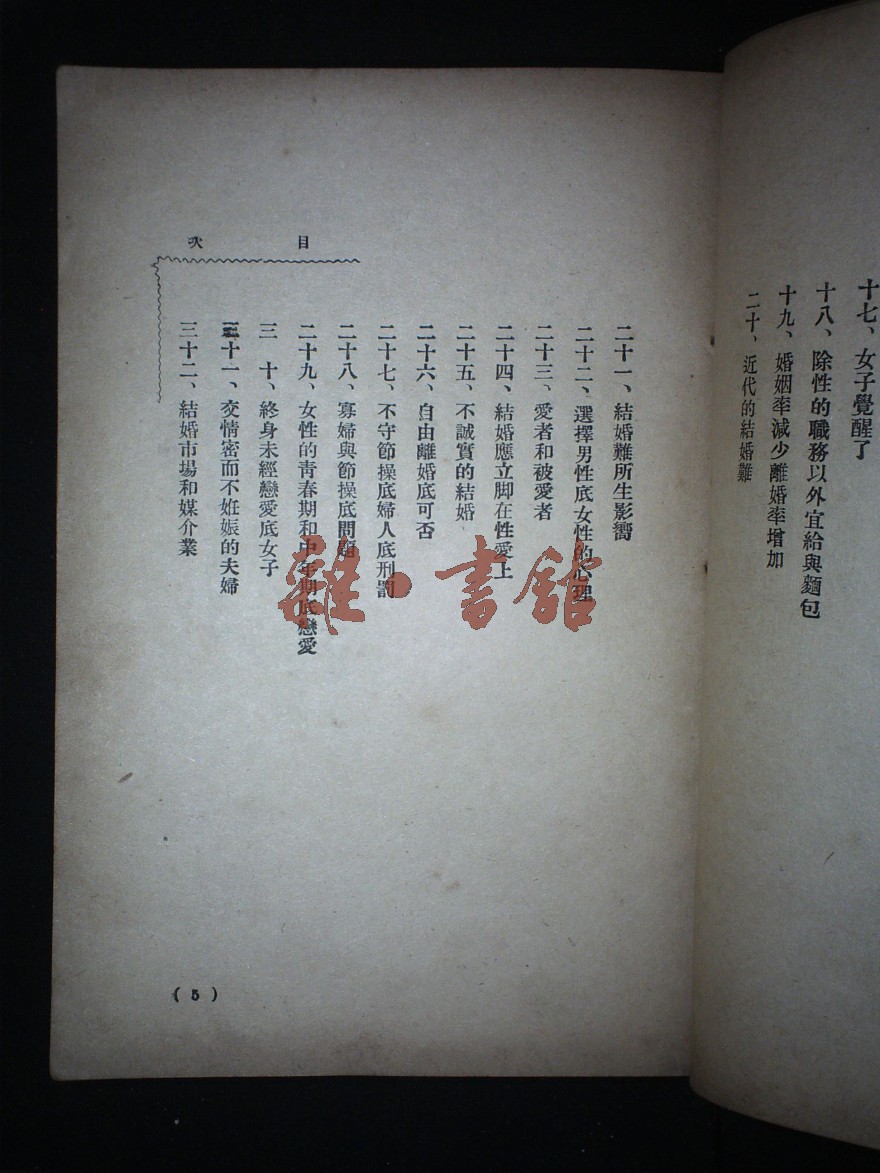 十七、女子覺醒了
十八、除性的職務以外宜給與麵包
十九、婚姻率減少離婚率增加
二十、近代的結婚難
目次
二十一、結婚難所生影嚮
二十二、選擇男性底女性的心理
二十三、愛者和被愛者
二十四、結婚應立脚在性愛上
二十五、不誠實的結婚
二十六、自由離婚底可否
二十七、不守節操底婦人底刑罰
二十八、寡婦與節操底問題
二十九、女性的青春期和中年期底戀愛
三十、終身未經戀愛底女子
三十一、交情密而不姙娠的夫婦
三十二、結婚市場和媒介業
(5)
雜·書館